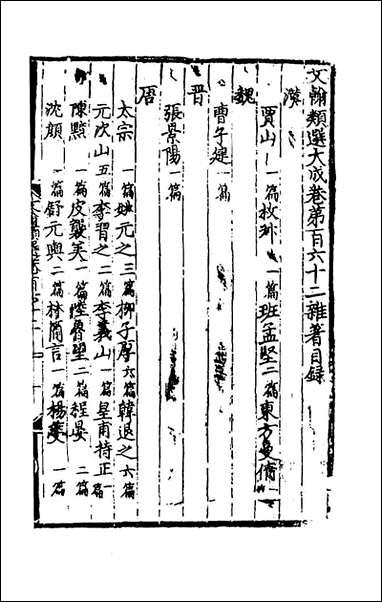 文翰類選大成卷第百六十二雜著目錄
漢
賈山一篇 枚叔一篇 班孟堅二篇 東方曼倩一篇
魏
曹子建一篇
晉
張景陽一篇
唐
太宗一篇 姚元之三篇 柳子厚六篇 韓退之六篇
元次山五篇 李習之二篇 李義山一篇 皇甫持正一篇
陳黯一篇 皮襲美一篇 陸魯望二篇 程晏二篇
沈顏一篇 舒元輿二篇 林簡言一篇 楊夔一篇